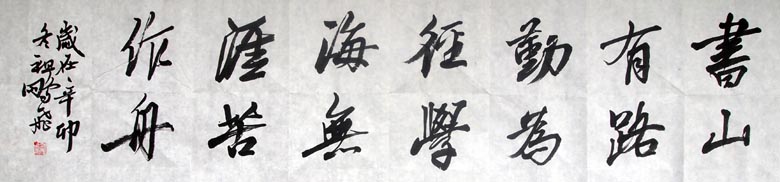 書山
有路
勤為
徑學
海無
涯苦
作舟
歲在辛卯